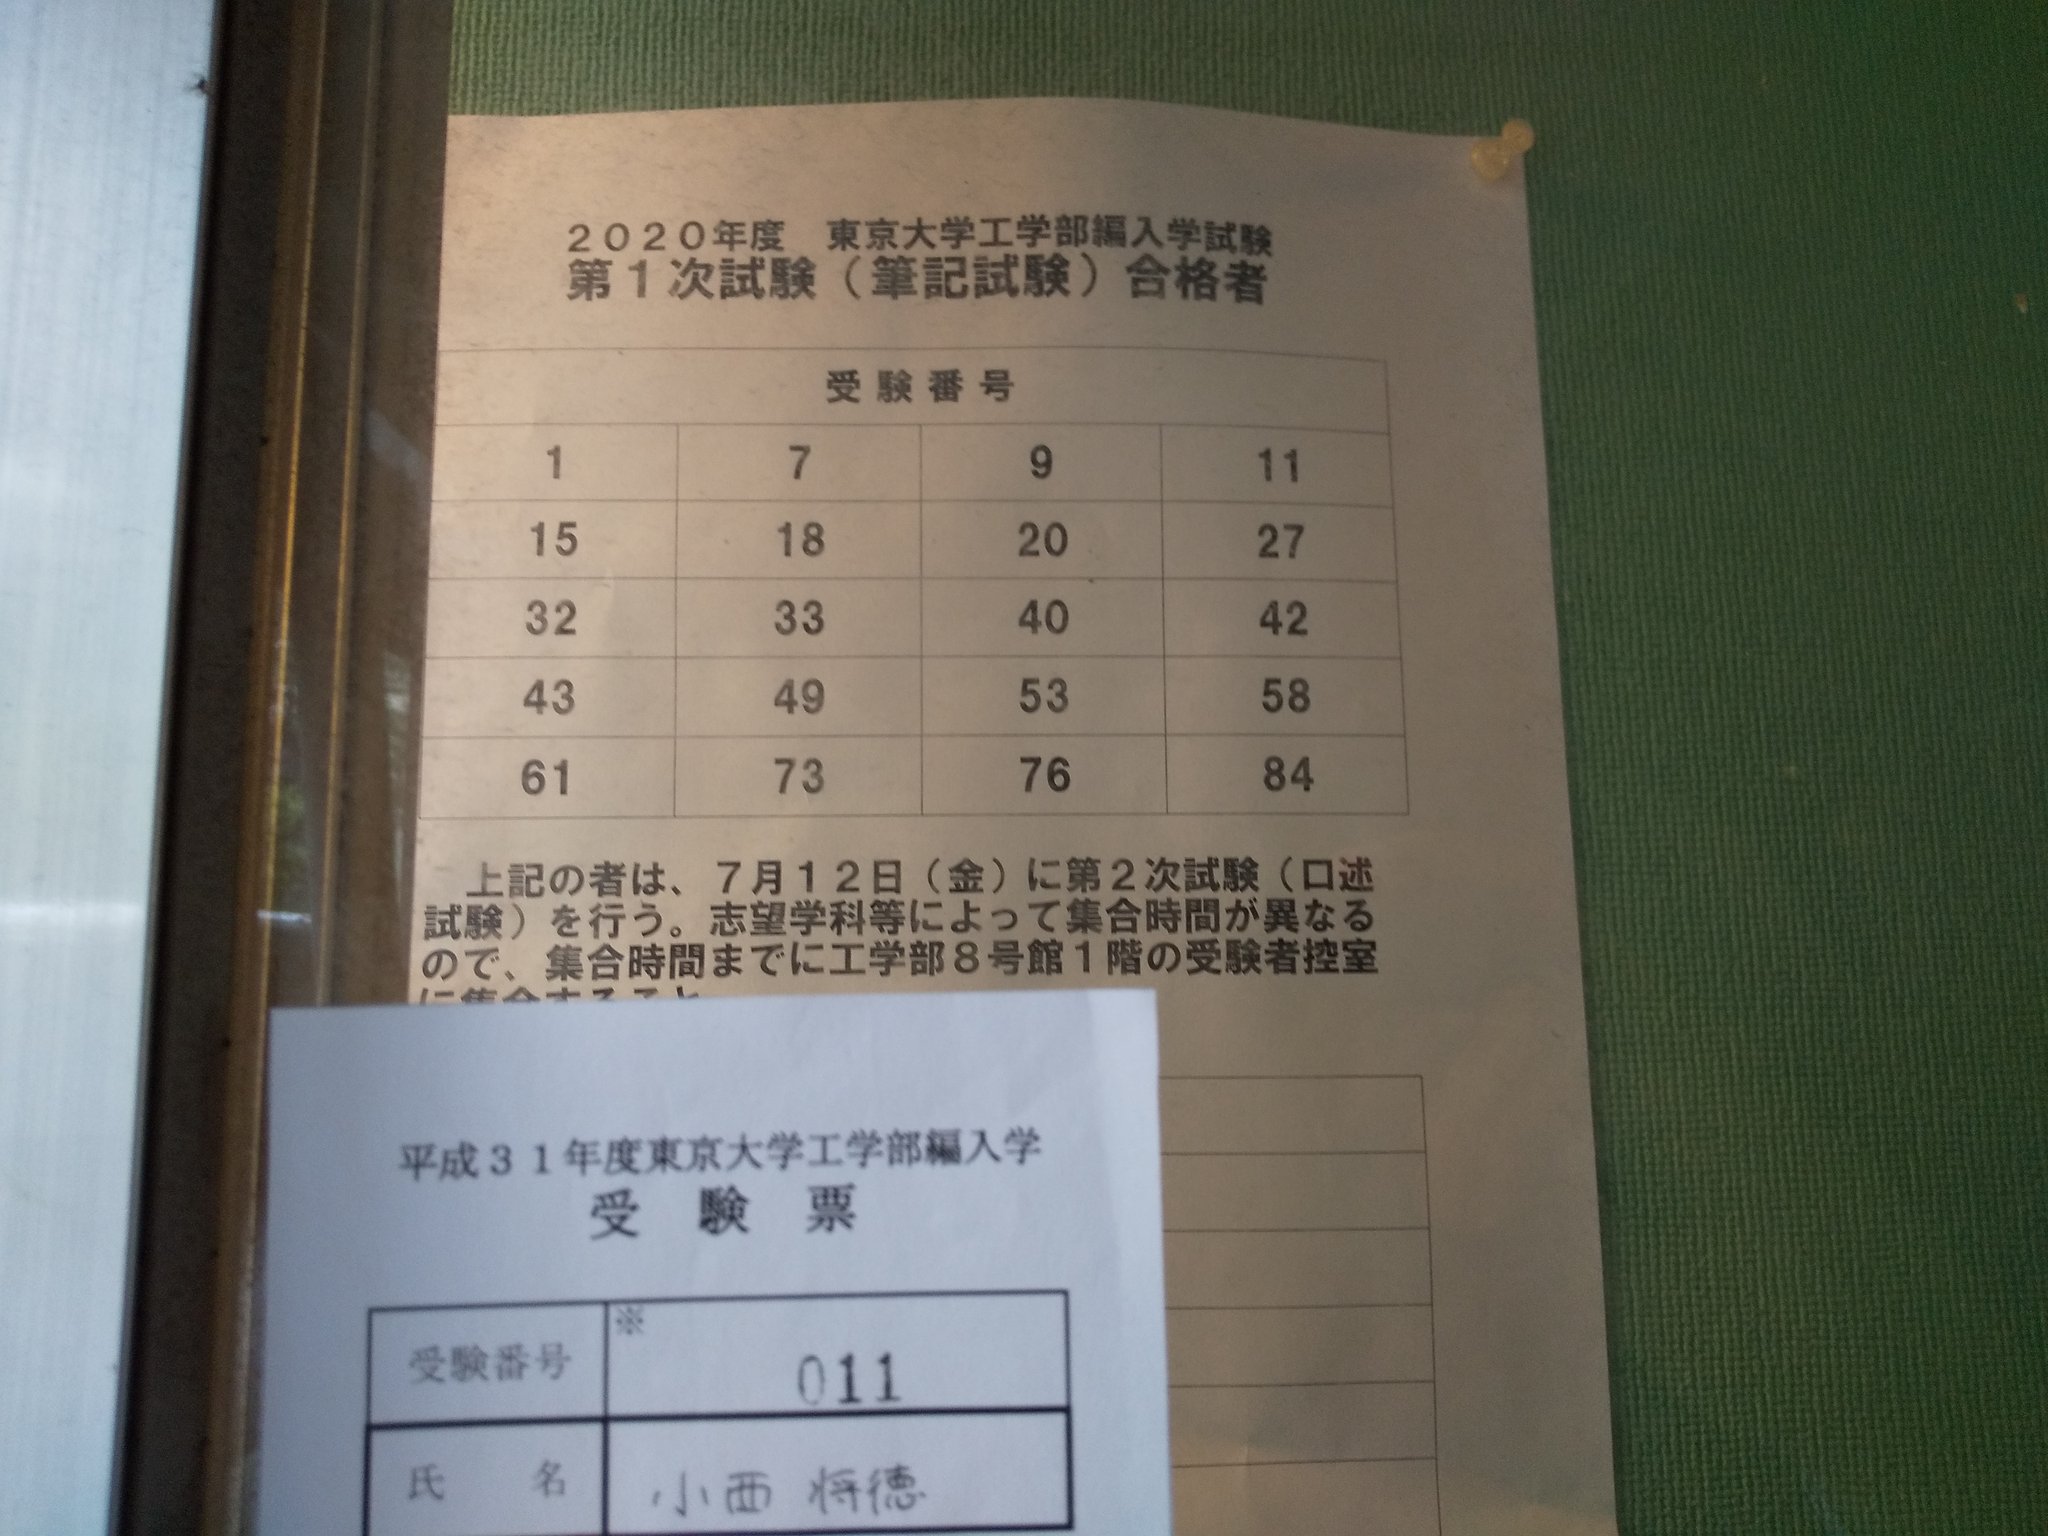 ２０２０年度　東京大学工学部編入学試験
第１次試験（筆記試験）合格者
受験番号
1 7 9 11
15 18 20 27
32 33 40 42
43 49 53 58
61 73 76 84
上記の者は、７月１２日（金）に第２次試験（口述
試験）を行う。志望学科等によって集合時間が異なる
ので、集合時間までに工学部８号館１階の受験者控室
に集合すること
平成３１年度東京大学工学部編入学
受験票
受験番号 ※ 011
氏名 小西 将徳